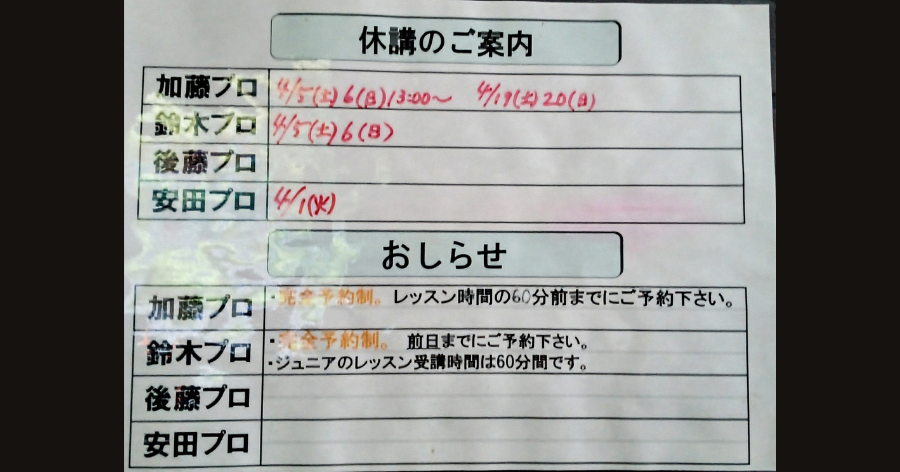 休講のご案内
加藤プロ 4/5(土)6(日)13:00〜 4/19(土)20(日)
鈴木プロ 4/5(土)6(日)
後藤プロ
安田プロ 4/1(火)
おしらせ
加藤プロ ・完全予約制。レッスン時間の60分前までにご予約下さい。
鈴木プロ ・完全予約制。 前日までにご予約下さい。
・ジュニアのレッスン受講時間は60分間です。
後藤プロ
安田プロ